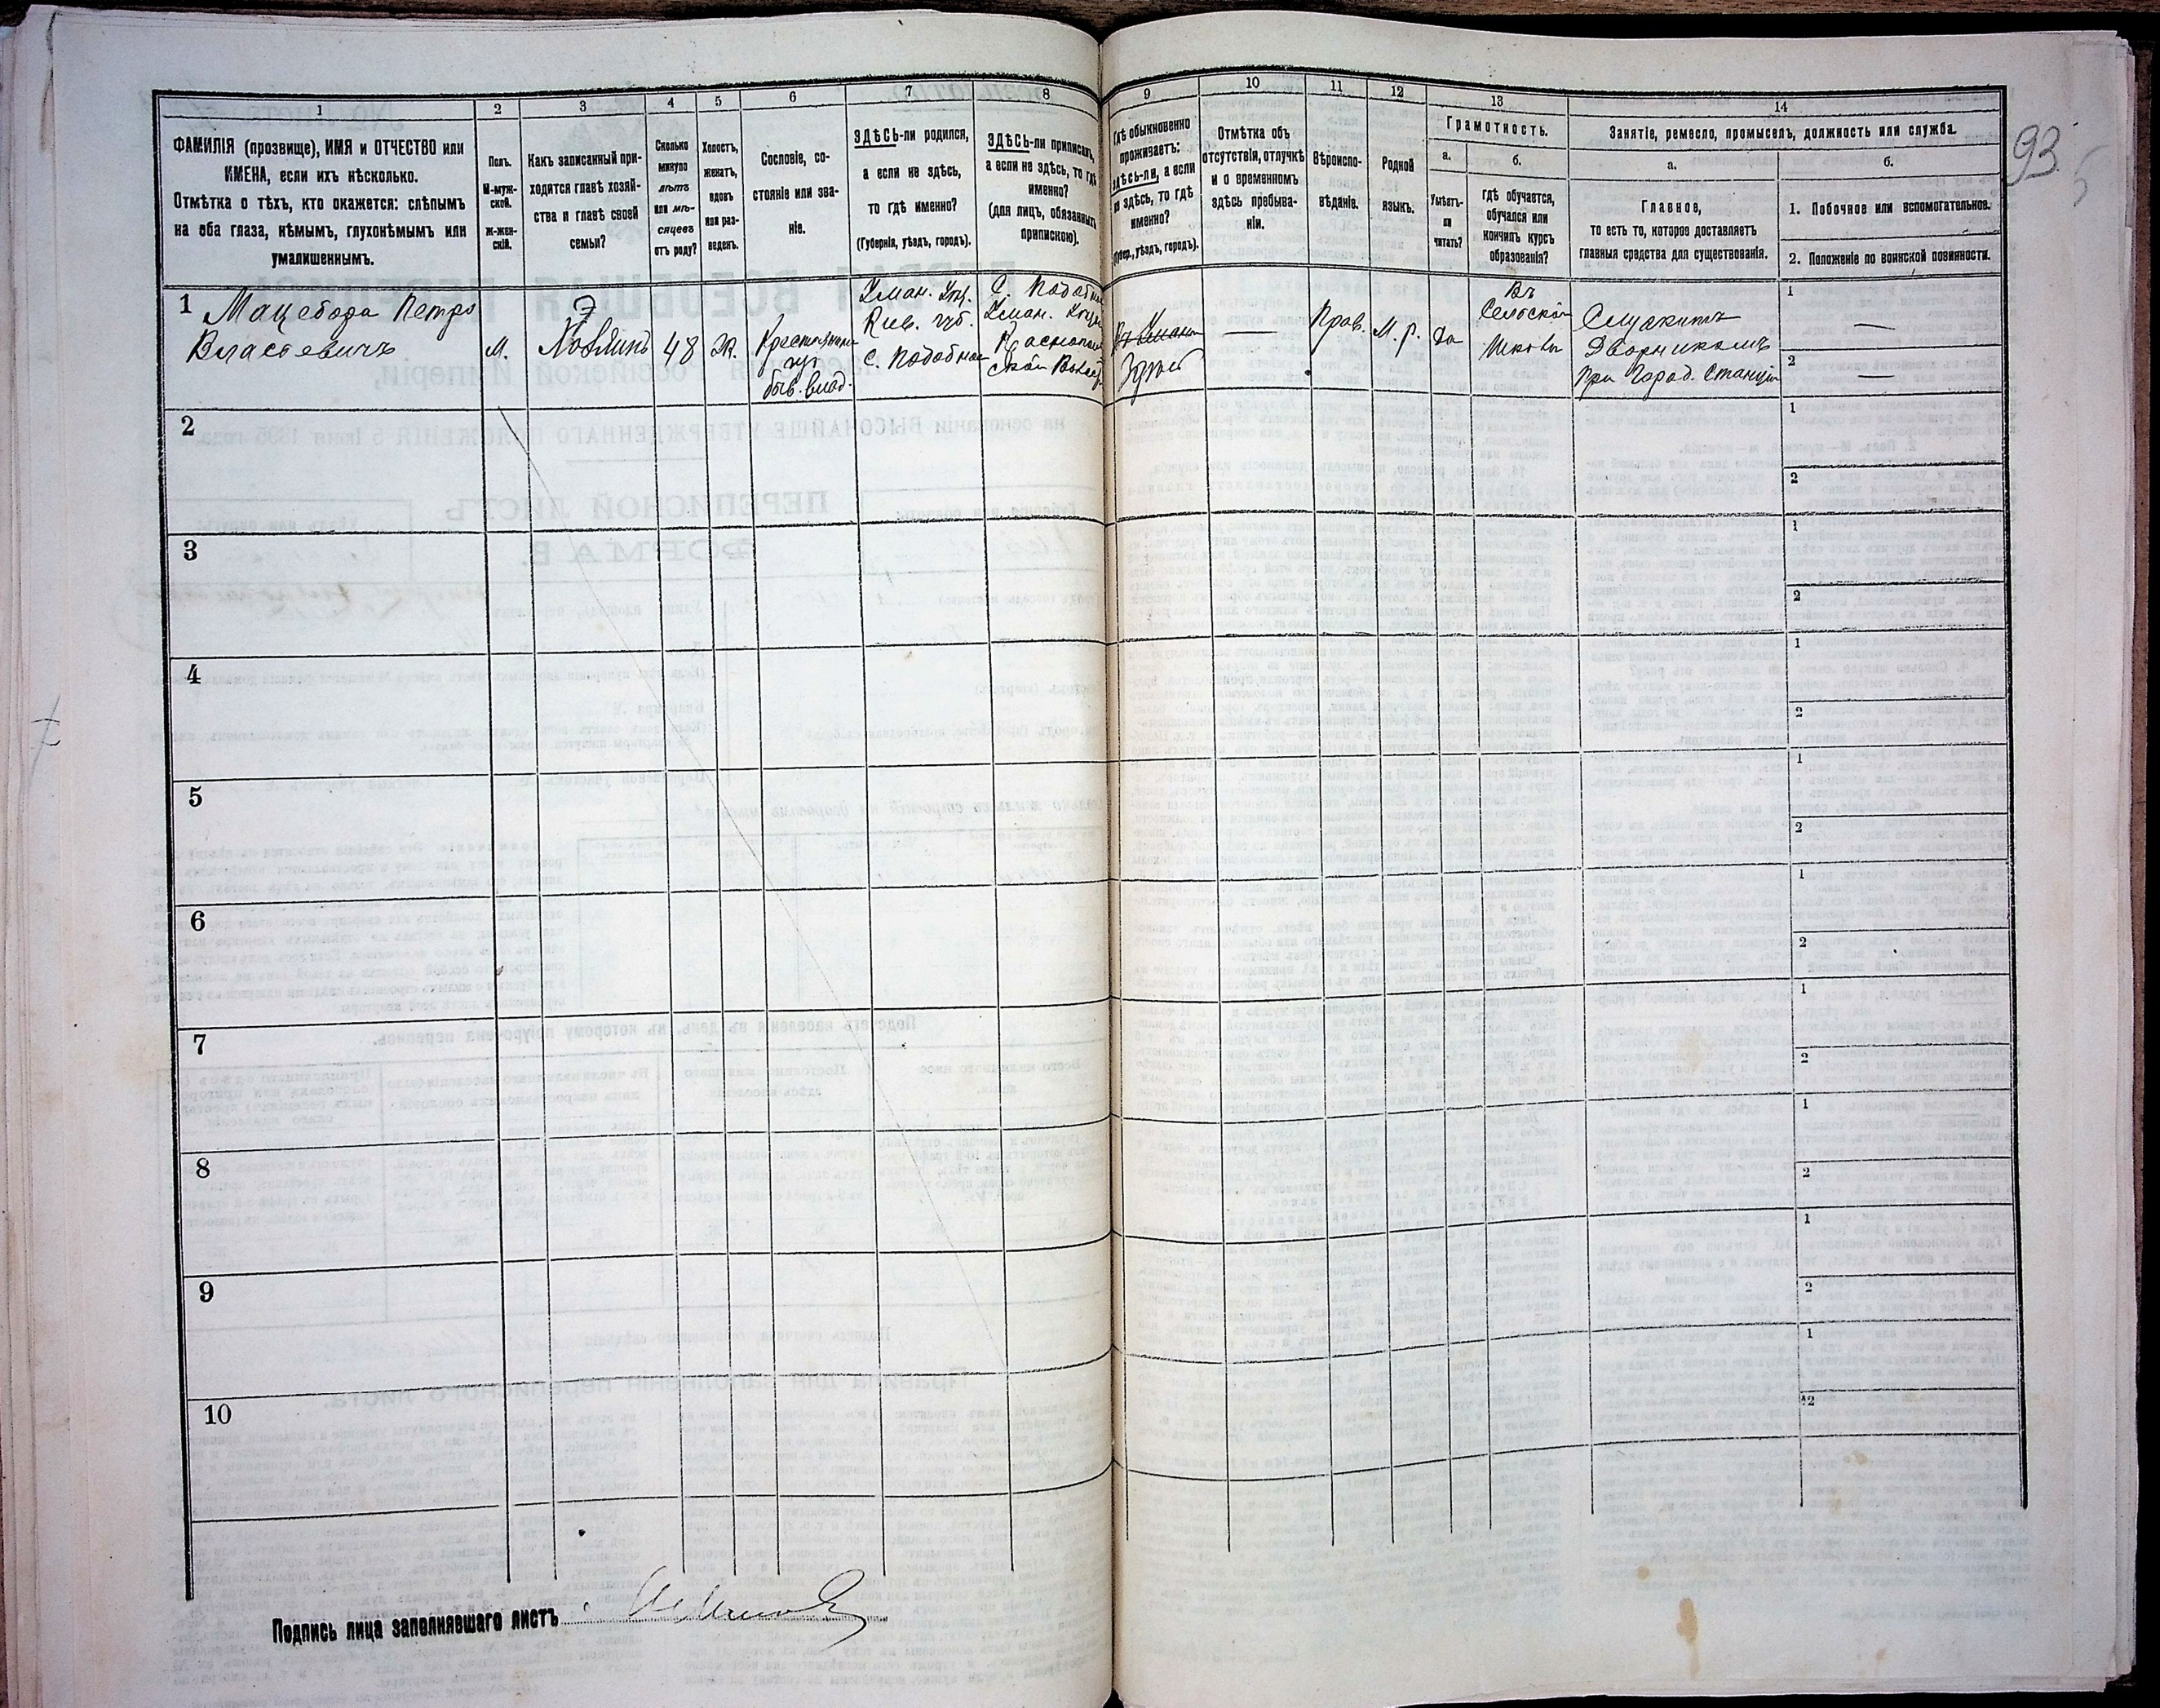 93
1
2
3
4
5
6
7
8
9
10
11
12
13
14
ФАМИЛІЯ (прозвище), ИМЯ и ОТЧЕСТВО или
ИМЕНА, если ихъ нѣсколько.
Отмѣтка о тѣхъ, кто окажется: слѣпымъ
на оба глаза, нѣмымъ, глухонѣмымъ или
умалишеннымъ.
Полъ.
М-муж-
ской.
Ж-жен-
скій.
Какъ записанный при-
ходится главѣ хозяй-
ства и главѣ своей
семьи?
Сколько
минуло
лѣтъ
или мѣ-
сяцевъ
отъ роду?
Холостъ,
женатъ,
вдовъ
или раз-
веденъ.
Сословіе, со-
стояніе или зва-
ніе.
ЗДѢСЬ-ли родился,
а если не здѣсь,
то гдѣ именно?
(Губернія, уѣздъ, городъ).
ЗДѢСЬ-ли приписанъ,
а если не здѣсь, то гдѣ
именно?
(для лицъ, обязанныхъ
припискою).
Гдѣ обыкновенно
проживаетъ:
здѣсь-ли, а если
не здѣсь, то гдѣ
именно?
(Губер., уѣздъ, городъ).
Отмѣтка объ
отсутствіи, отлучкѣ
и о временномъ
здѣсь пребыва-
ніи.
Вѣроиспо-
вѣданіе.
Родной
языкъ.
Грамотность.
а.
б.
Умѣетъ-
ли
читать?
Гдѣ обучается,
обучался или
кончилъ курсъ
образованія?
Занятіе, ремесло, промыселъ, должность или служба.
а.
б.
Главное,
то есть то, которое доставляетъ
главныя средства для существованія.
1. Побочное или вспомогательное.
2. Положеніе по воинской повинности.
1 Мацебора Петро
Власьевичъ
М.
Хозяинъ
48
Ж.
Уман. Уѣз.
Кіев. губ.
С. Подобная
быв. влад.
С. Подобная
Уман. Уѣзд
Здѣсь
—
Прав.
М. р.
Да
Въ
Сельской
Школѣ
Служитъ
Дворникомъ
при Город. Станціи
1
—
2
—
2
1
2
3
1
2
4
1
2
5
1
2
6
1
2
7
1
2
8
1
2
9
1
2
10
1
2
Подпись лица заполнявшаго листъ